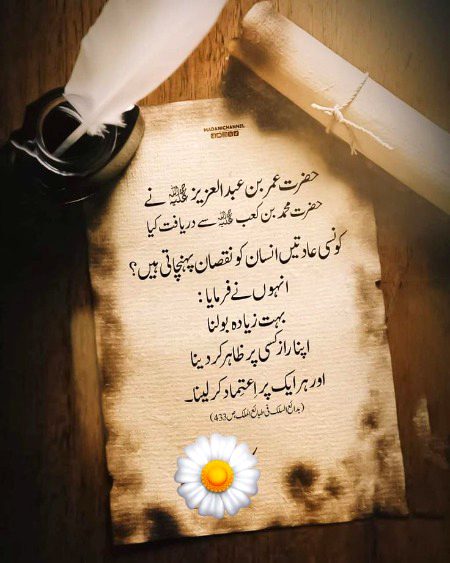 MADANICHANNEL
حضرت عمر بن عبد العزیز رحمۃ اللہ علیہ نے
حضرت محمد بن کعب رحمۃ اللہ علیہ سے دریافت کیا
کونسی عادتیں انسان کو نقصان پہنچاتی ہیں؟
انہوں نے فرمایا:
بہت زیادہ بولنا
اپنا راز کسی پر ظاہر کر دینا
اور ہر ایک پر اِعتِماد کر لینا۔
(بدائع السلک فی طبائع الملک ص 433)